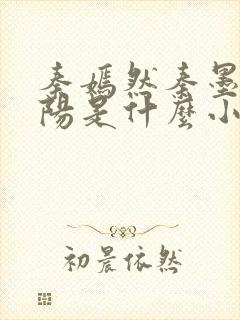 秦嫣然秦墨
陽是什麼小
初晨依然